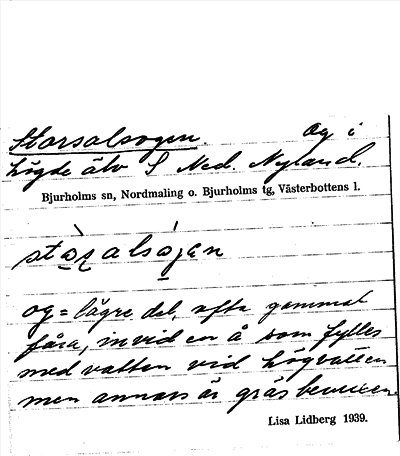 Storsalsogen. Og i
Lögde älv S Ned. Nyland.
Bjurholms sn, Nordmaling o. Bjurholms tg, Västerbottens l.
og = lägre del, ofta gammal
fåra, invid en å som fylles
med vatten vid högvatten
men annars är gräsbevuxen.
Lisa Lidberg 1939.